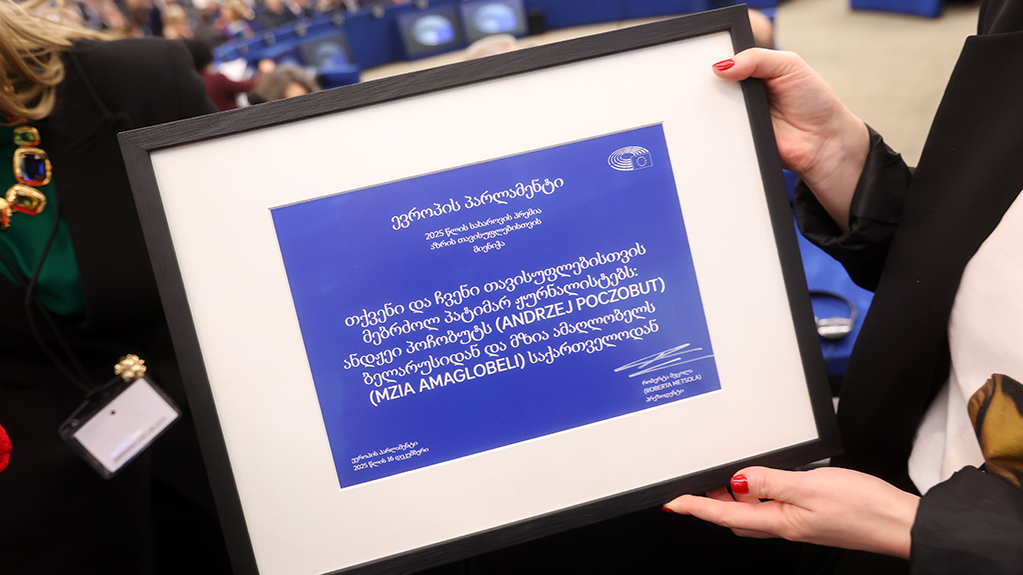 ევროპის პარლამენტი
2025 წლის სახაროვის პრემია
აზრის თავისუფლებისთვის
მიენიჭა
თქვენი და ჩვენი თავისუფლებისთვის
მებრძოლ პატიმარ ჟურნალისტებს:
ანდჟეი პოჩობუტს (ANDRZEJ POCZOBUT)
ბელარუსიდან და მზია ამაღლობელს
(MZIA AMAGLOBELI) საქართველოდან
რობერტა მეცოლა
(ROBERTA METSOLA)
პრეზიდენტი
ევროპის პარლამენტი
2025 წლის 16 დეკემბერი